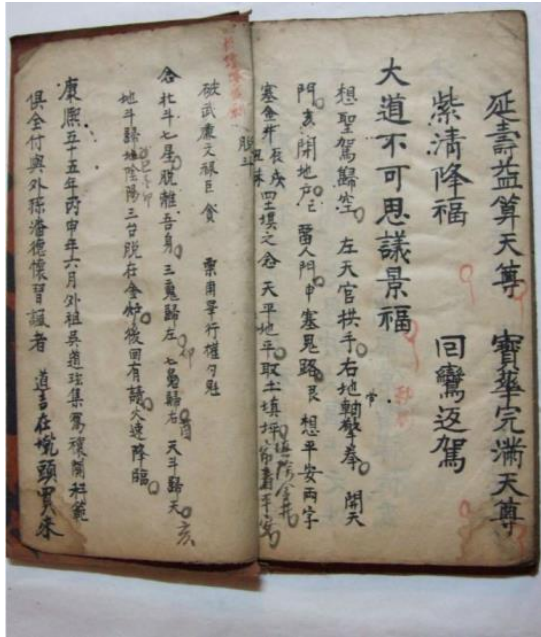 延壽益算天尊　寶華完滿天尊
紫清降福　回鸞返駕
大道不可思議景福
想聖駕歸空　左天官拱手右地軸擎拳　開天
門亥開地戶巳　留人門申塞鬼路艮　想平安兩字
塞金井辰戌丑未四土填之念　天平地平取土填坪
破武廉文祿巨貪　畢行權勺
念北斗七星脫離吾身　三魂歸左　七魄歸右　天斗歸天亥
地斗歸地陰陽三台脫在金爐後回有請火速降臨
康熙五十五年丙申年六月外祖吳道　集寫禳關科範
俱全付與外孫潘德懷習誦者　道吉在　頭買來